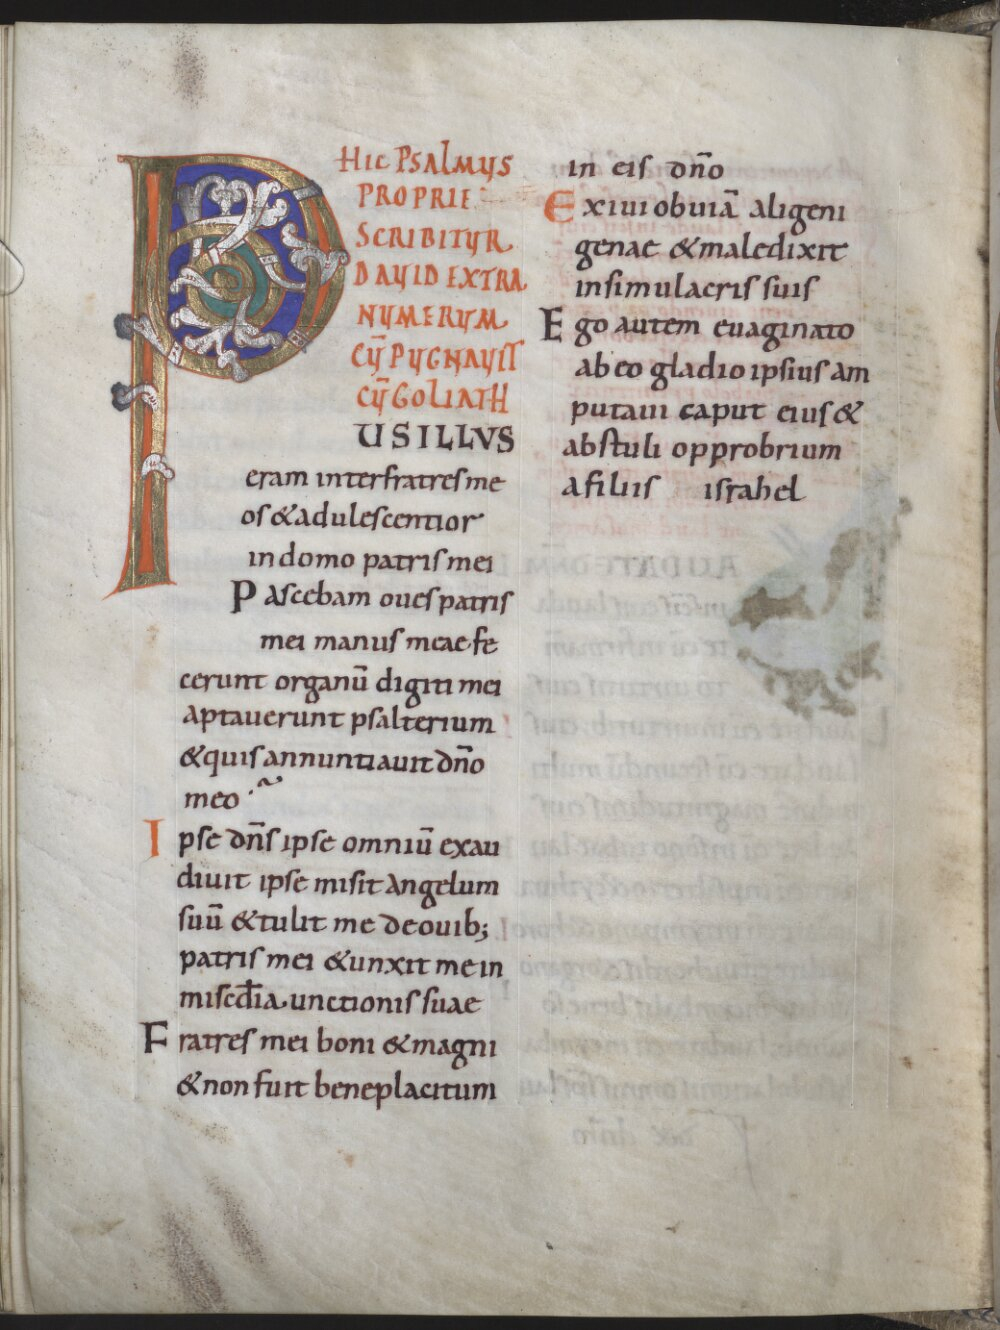 HIC PSALMUS
PROPRIE
SCRIBITUR
DAUID EXTRA
NUMERUM
CŪ PUGNAUIT
CŪ GOLIATH
PUSILLVS
eram inter fratres me
os & adulescentior
in domo patris mei
Pascebam oues patris
mei manus meae fe
cerunt organū digiti mei
aptauerunt psalterium
& quis annuntiauit dño
meo
Ipse dñs ipse omniū exau
diuit ipse misit angelum
suū & tulit me de ouib;
patris mei & unxit me in
miscđia unctionis suae
Fratres mei boni & magni
& non fuit beneplacitum
in eis dño
Exiui obuiā aligeni
genae & maledixit
in simulacris suis
Ego autem euaginato
ab eo gladio ipsius am
putaui caput eius &
abstuli opprobrium
a filiis israhel